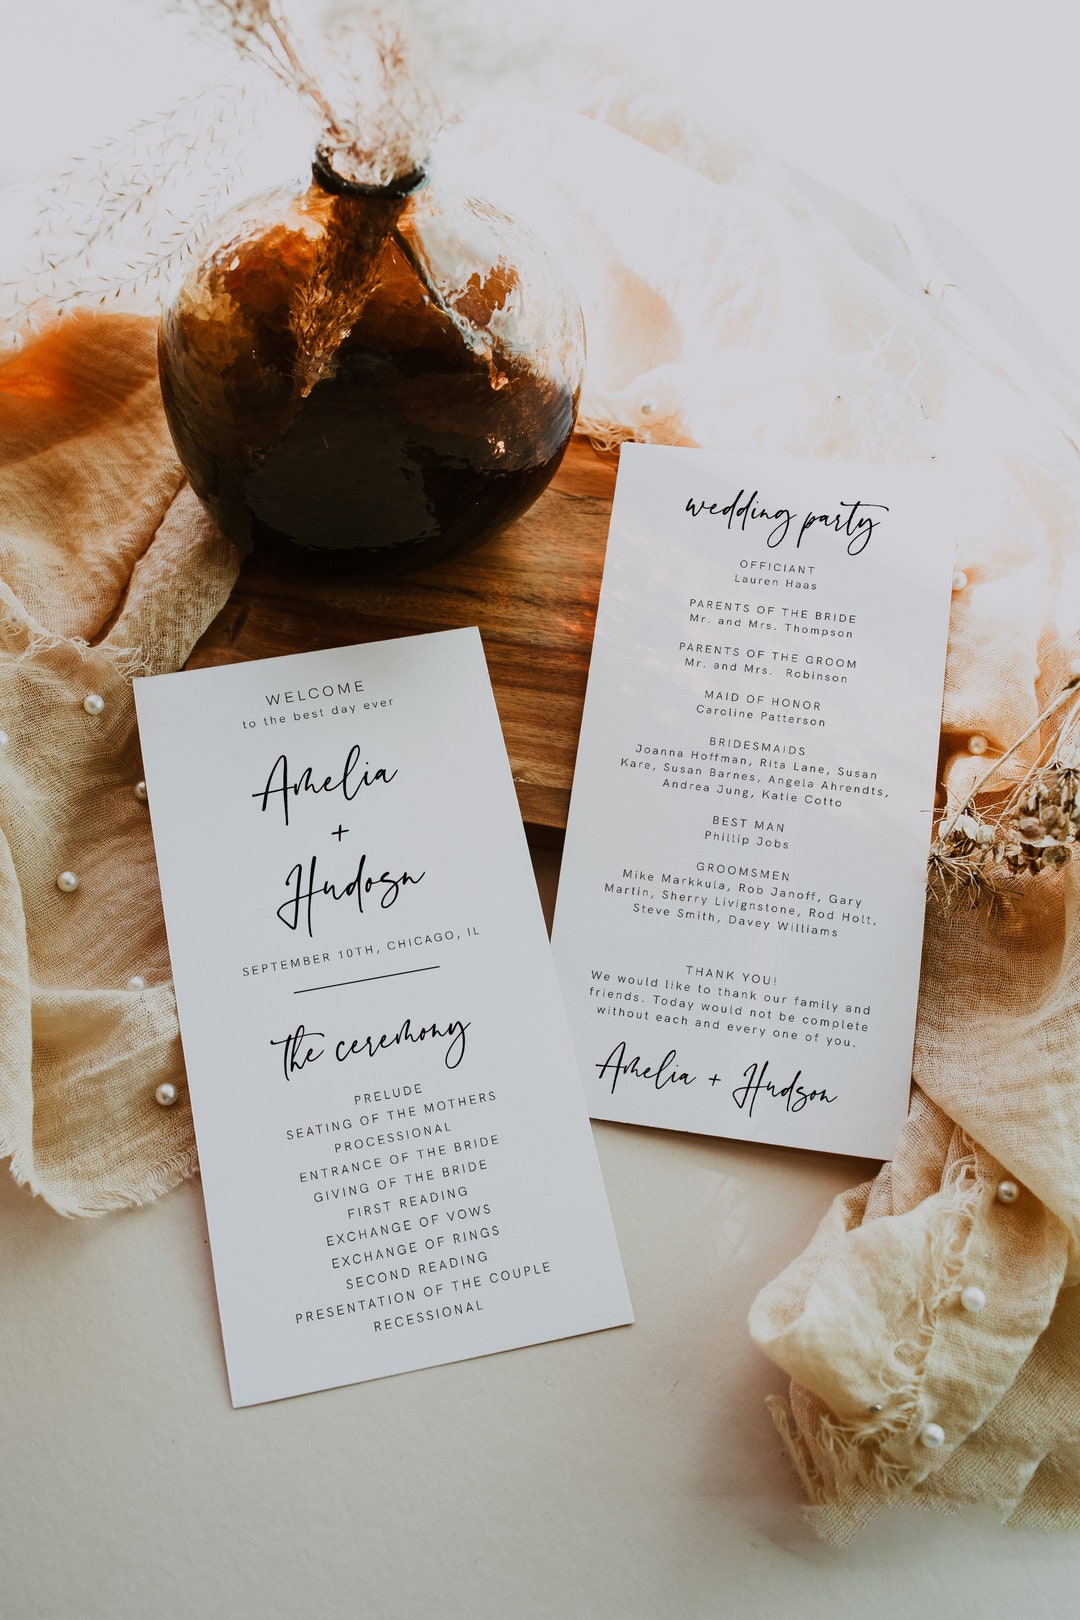 WELCOME
to the best day ever
Amelia
+
Hudosn
SEPTEMBER 10TH, CHICAGO, IL
the ceremony
PRELUDE
SEATING OF THE MOTHERS
PROCESSIONAL
ENTRANCE OF THE BRIDE
GIVING OF THE BRIDE
FIRST READING
EXCHANGE OF VOWS
EXCHANGE OF RINGS
SECOND READING
PRESENTATION OF THE COUPLE
RECESSIONAL
wedding party
OFFICIANT
Lauren Haas
PARENTS OF THE BRIDE
Mr. and Mrs. Thompson
PARENTS OF THE GROOM
Mr. and Mrs. Robinson
MAID OF HONOR
Caroline Patterson
BRIDESMAIDS
Joanna Hoffman, Rita Lane, Susan
Kare, Susan Barnes, Angela Ahrendts,
Andrea Jung, Katie Cotto
BEST MAN
Phillip Jobs
GROOMSMEN
Mike Markkula, Rob Janoff, Gary
Martin, Sherry Livignstone, Rod Holt,
Steve Smith, Davey Williams
THANK YOU!
We would like to thank our family and
friends. Today would not be complete
without each and every one of you.
Amelia + Hudson